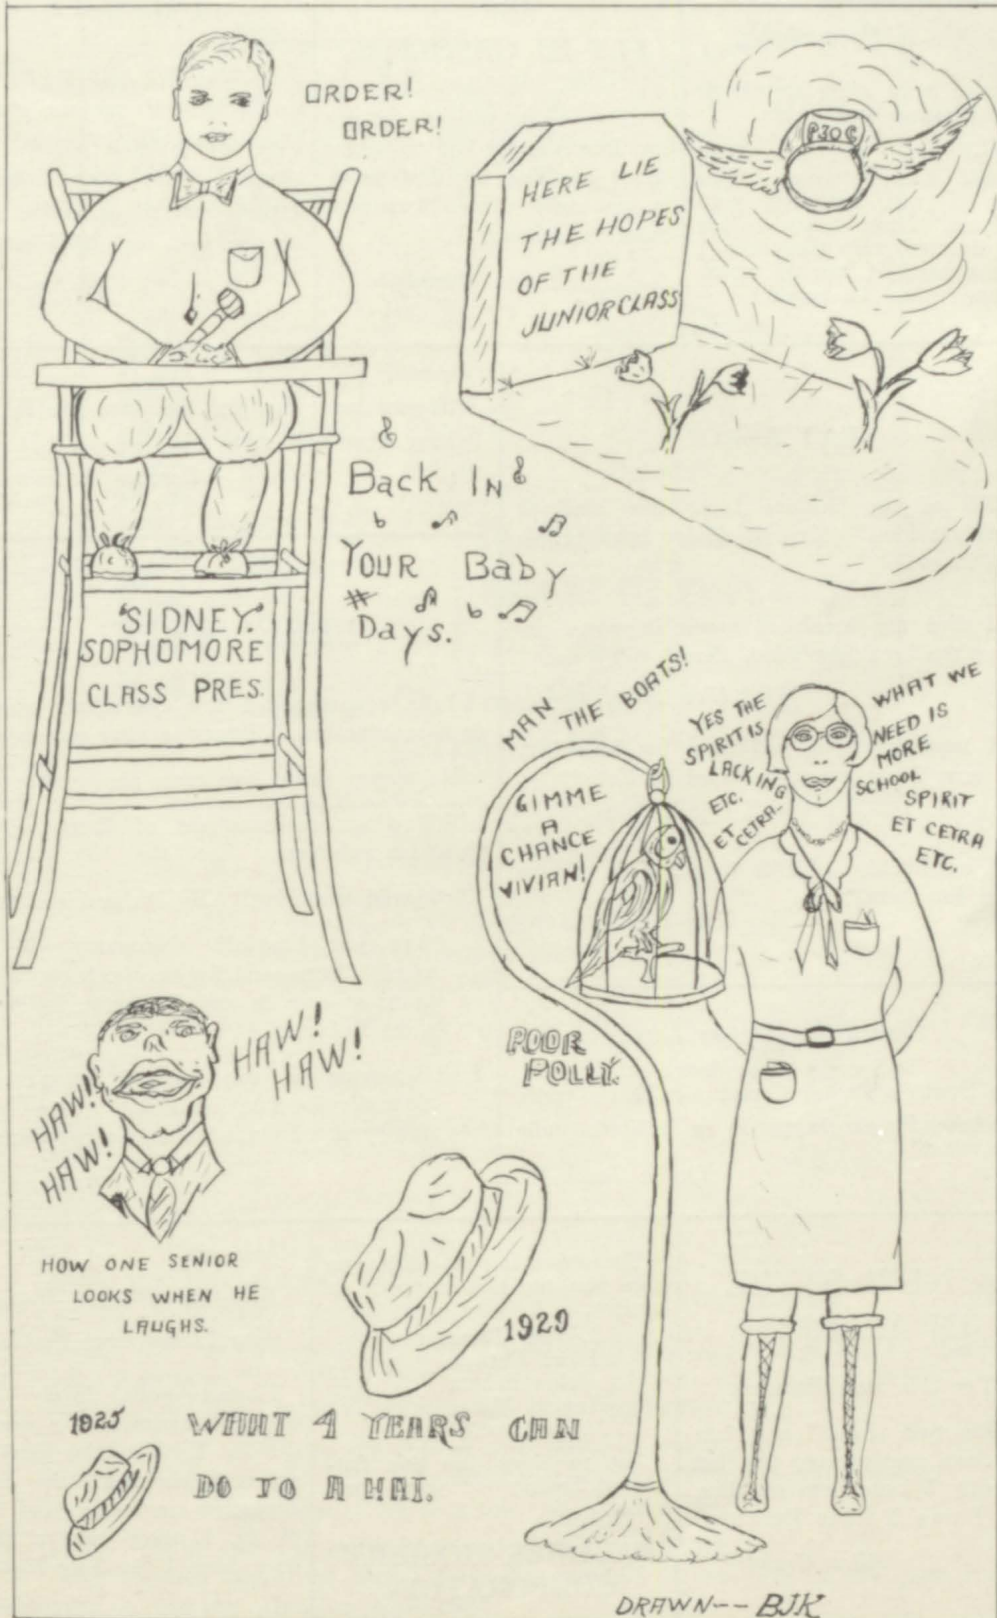 ORDER!
ORDER!
HERE LIE
THE HOPES
OF THE
JUNIOR CLASS
P30C
Back IN
YOUR Baby
Days.
"SIDNEY."
SOPHOMORE
CLASS PRES.
MAN THE BOATS!
GIMME
A
CHANCE
VIVIAN!
YES THE
SPIRIT IS
LACKING
ETC.
ET CETRA-
WHAT WE
NEED IS
MORE
SCHOOL
SPIRIT
ET CETRA
ETC.
POOR
POLLY.
HAW!
HAW!
HAW!
HAW!
HOW ONE SENIOR
LOOKS WHEN HE
LAUGHS.
1929
1925
WHAT 4 YEARS CAN
DO TO A HAT.
DRAWN-- BJK